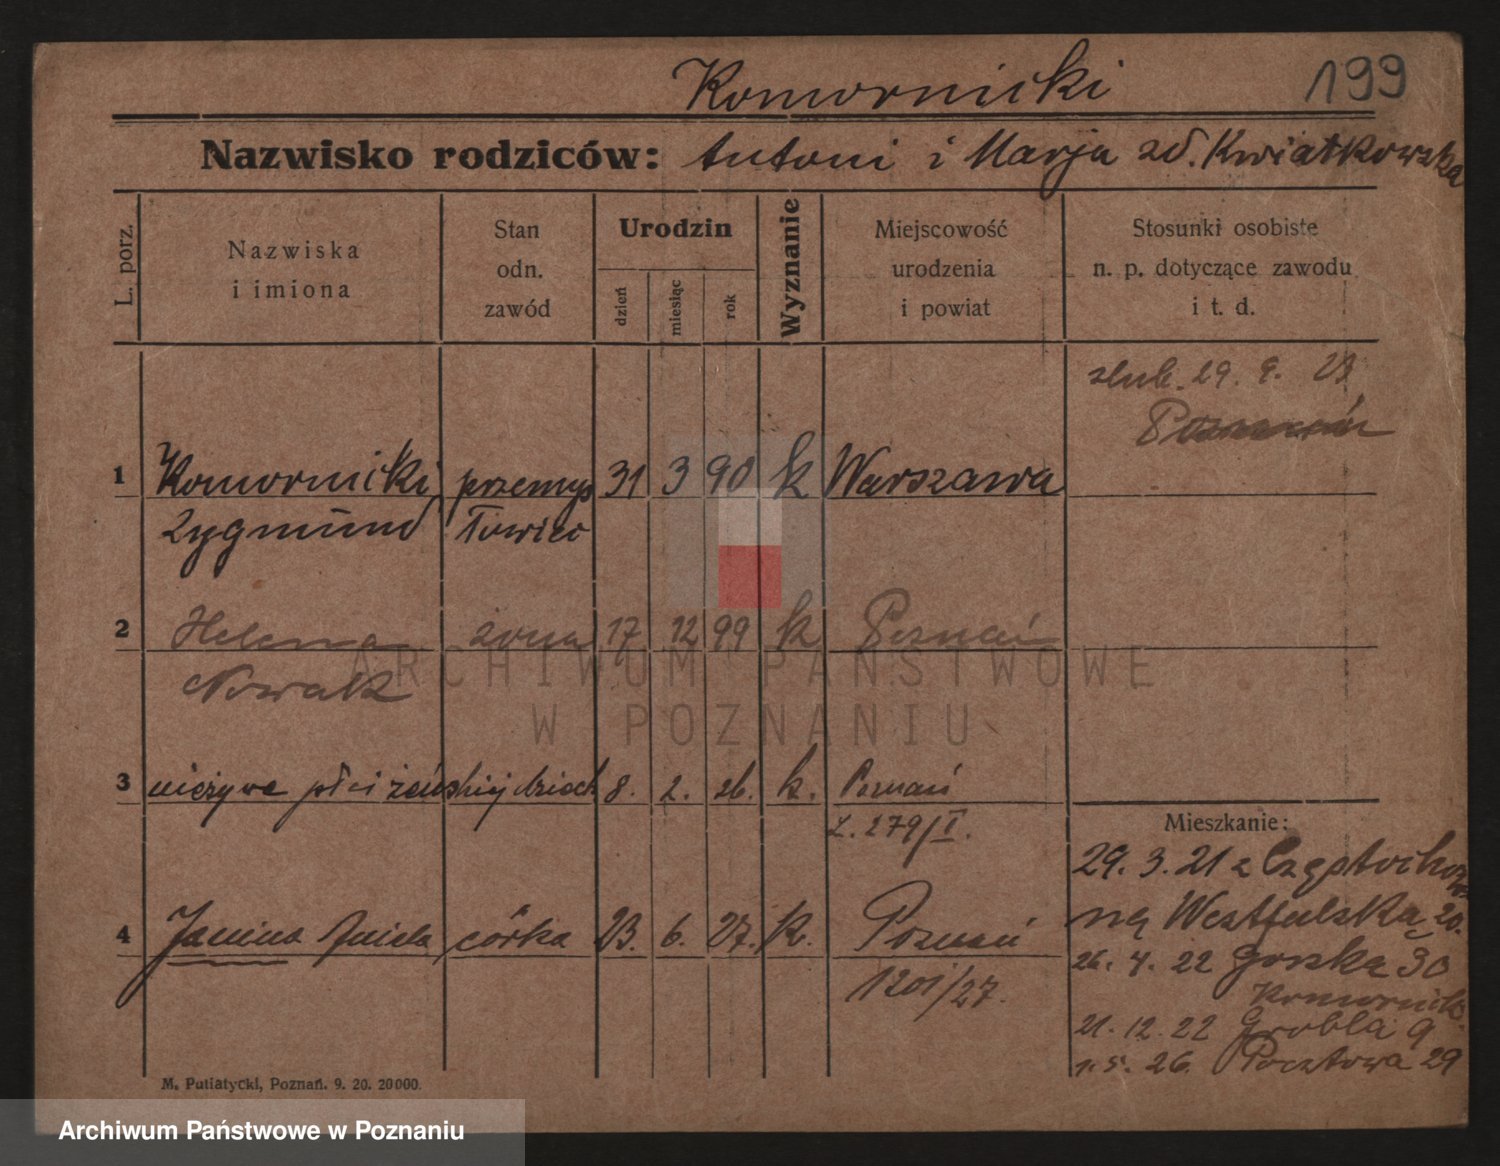 Komornicki
199
Nazwisko rodziców: Antoni i Marja zd. Kwiatkowska
L. porz.
Nazwiska
i imiona
Stan
odn.
zawód
Urodzin
dzień
miesiąc
rok
Wyznanie
Miejscowość
urodzenia
i powiat
Stosunki osobiste
n. p. dotyczące zawodu
i t. d.
ślub. 29. 9. 23
Poznań
1 Komornicki przemys 31 3 90 k Warszawa
Zygmund łowiec
2 Helena żona 17 12 99 k Poznań
Nowak
3 nieżywe płci żeńskiej dziecko 8. 2. 26. k. Poznań
L. 279/I.
4 Janina Aniela córka 23. 6. 27. k. Poznań
1201/27.
Mieszkanie:
29. 3. 21 z
ną Westfalska 20.
26. 4. 22 Gorska 30
Komornicki
21. 12. 22 Grobla 9
1. 5. 26. Pocztowa 29
M. Putiatycki, Poznań. 9. 20. 20000.
ARCHIWUM PAŃSTWOWE
W POZNANIU
Archiwum Państwowe w Poznaniu